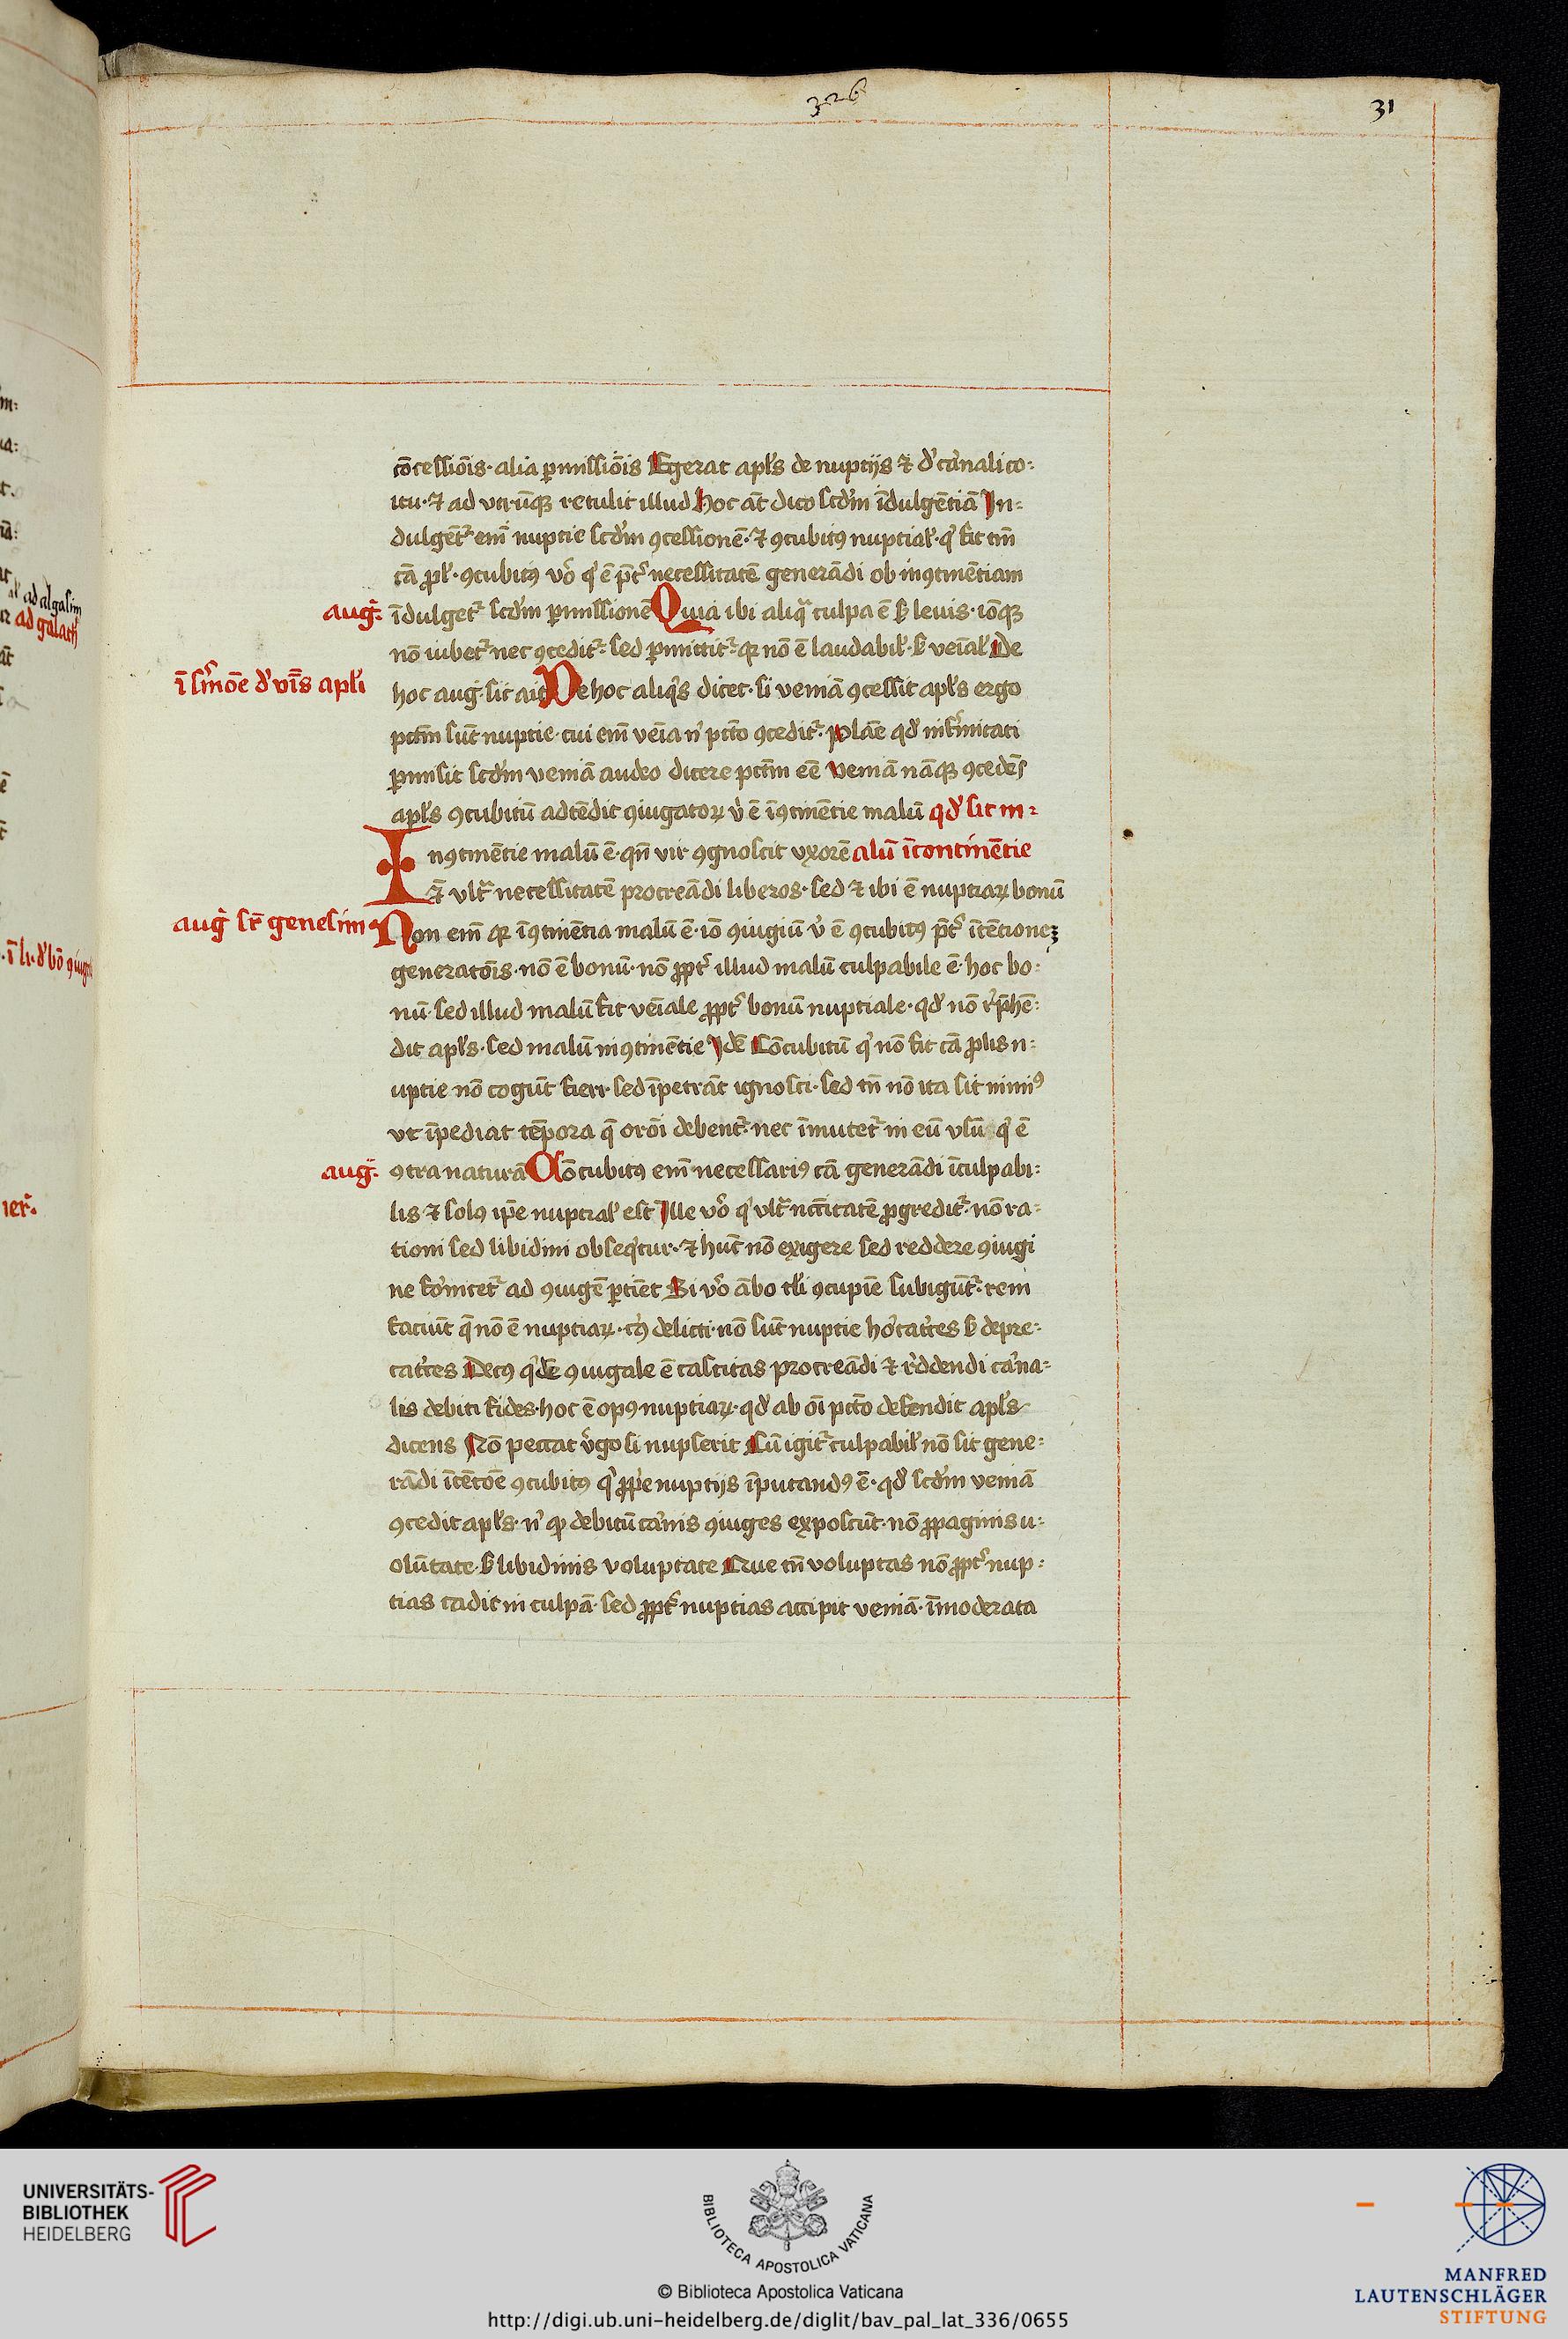 326
31
cōcessiōis· alia ꝑmissiōis Egerat apl's de nuptijs ⁊ d' carnali co:
itu· ⁊ ad vtrūqꝫ retulit illud Hoc āt dico scd'm īdulgētiā In:
dulgēt᷑ em̄ nuptie scd'm ꝯcessionē· ⁊ ꝯcubitꝰ nuptial'· qͥ fit tm̄
cā ꝓl'· ꝯcubitꝰ vō qͥ ē p̄t' necessitatē generādi ob inꝯtinētiam
aug᷑·
īdulget᷑ scd'm ꝑmissionē Quia ibi aliqͣ culpa ē ß leuis· iōqꝫ
nō iubet᷑ nec ꝯcedit᷑· sed ꝑmittit᷑· qꝛ nō ē laudabil'· ß veīal' De
ī s'mōe d' v'bīs apl'i
hoc aug᷑· sic ait Ne hoc aliqͥs dicet· si veniā ꝯcessit apl's ergo
pctm̄ sūt nuptie· cui em̄ veīa nͥ pctō ꝯcedit᷑· Plāe qd' infirmitati
ꝑmisit scd'm veniā audeo dicere pctm̄ eē Veniā nāqꝫ ꝯcedēs
apl's ꝯcubitū adtēdit ꝯiugatoꝝ v̇ ē īꝯtinētie malū qd' sit m:
Inꝯtinētie malū ē· qn̄ vir ꝯgnoscit vxorē alū īcontinētie
ēt vlt᷑ necessitatē procreādi liberos· sed ⁊ ibi ē nuptiaꝝ bonū
aug᷑ sr̄ genesim
Non em̄ qꝛ īꝯtinētia malū ē· iō ꝯiugiū v̇ ē ꝯcubitꝰ p̄t' ītētioneꝫ
generatōis· nō ē bonū· nō ꝓpt' illud malū culpabile ē· hoc bo:
nū· sed illud malū fit veīale ꝓpt' bonū nuptiale· qd' nō rͤp̄hē:
dit apl's· sed malū inꝯtinētie Idē Cōcubitū qͥ nō fit cā ꝓlis n:
uptie nō cogūt fieri· sed īpetrāt ignosci· sed tn̄ nō ita sit nimiꝰ
vt īpediat tēpora q̄ orōi debent᷑· nec īmutet᷑ in eū vsū qͥ ē
aug᷑·
ꝯtra naturā Cōcubitꝰ em̄ necessariꝰ cā generādi īculpabi:
lis ⁊ solꝰ ip̄e nuptial' est Ille vō qͥ vlt᷑ nccītatē ꝓgredit᷑· nō ra:
tioni sed libidini obseqͥtur· ⁊ hūc nō exigere sed reddere ꝯiugi
ne fornicet᷑ ad ꝯiugē ꝑtiēt Si vō ābo tl'i ꝯcupīe subigūt᷑· rem
faciūt q̄ nō ē nuptiaꝝ· cꝰ delicti· nō sūt nuptie hortat'ces ß depre:
cat'ces Decꝰ qͥdē ꝯiugale ē castitas procreādi ⁊ rͤddendi carna:
lis debiti fides· hoc ē opꝰ nuptiaꝝ· qd' ab oī pctō defendit apl's
dicens Nō peccat v'go si nupserit Cū igit᷑ culpabil' nō sit gene:
rādi ītētōe ꝯcubitꝰ qͥ ꝓpͥe nuptijs īputandꝰ ē· qd' scd'm veniā
ꝯcedit apl's· nͥ ꝙ debitū carnis ꝯiuges exposcūt· nō ꝓpaginis u:
olūtate· ß libidinis voluptate Que tn̄ voluptas nō ꝓpt' nup:
tias cadit in culpā· sed ꝓpt' nuptias accipit veniā· īmoderata
ad algasim
ad galath'
ī li· d' bō ꝯiugͣ
ier᷑·
UNIVERSITÄTS-
BIBLIOTHEK
HEIDELBERG
BIBLIOTECA APOSTOLICA VATICANA
© Biblioteca Apostolica Vaticana
http://digi.ub.uni-heidelberg.de/diglit/bav_pal_lat_336/0655
MANFRED
LAUTENSCHLÄGER
STIFTUNG